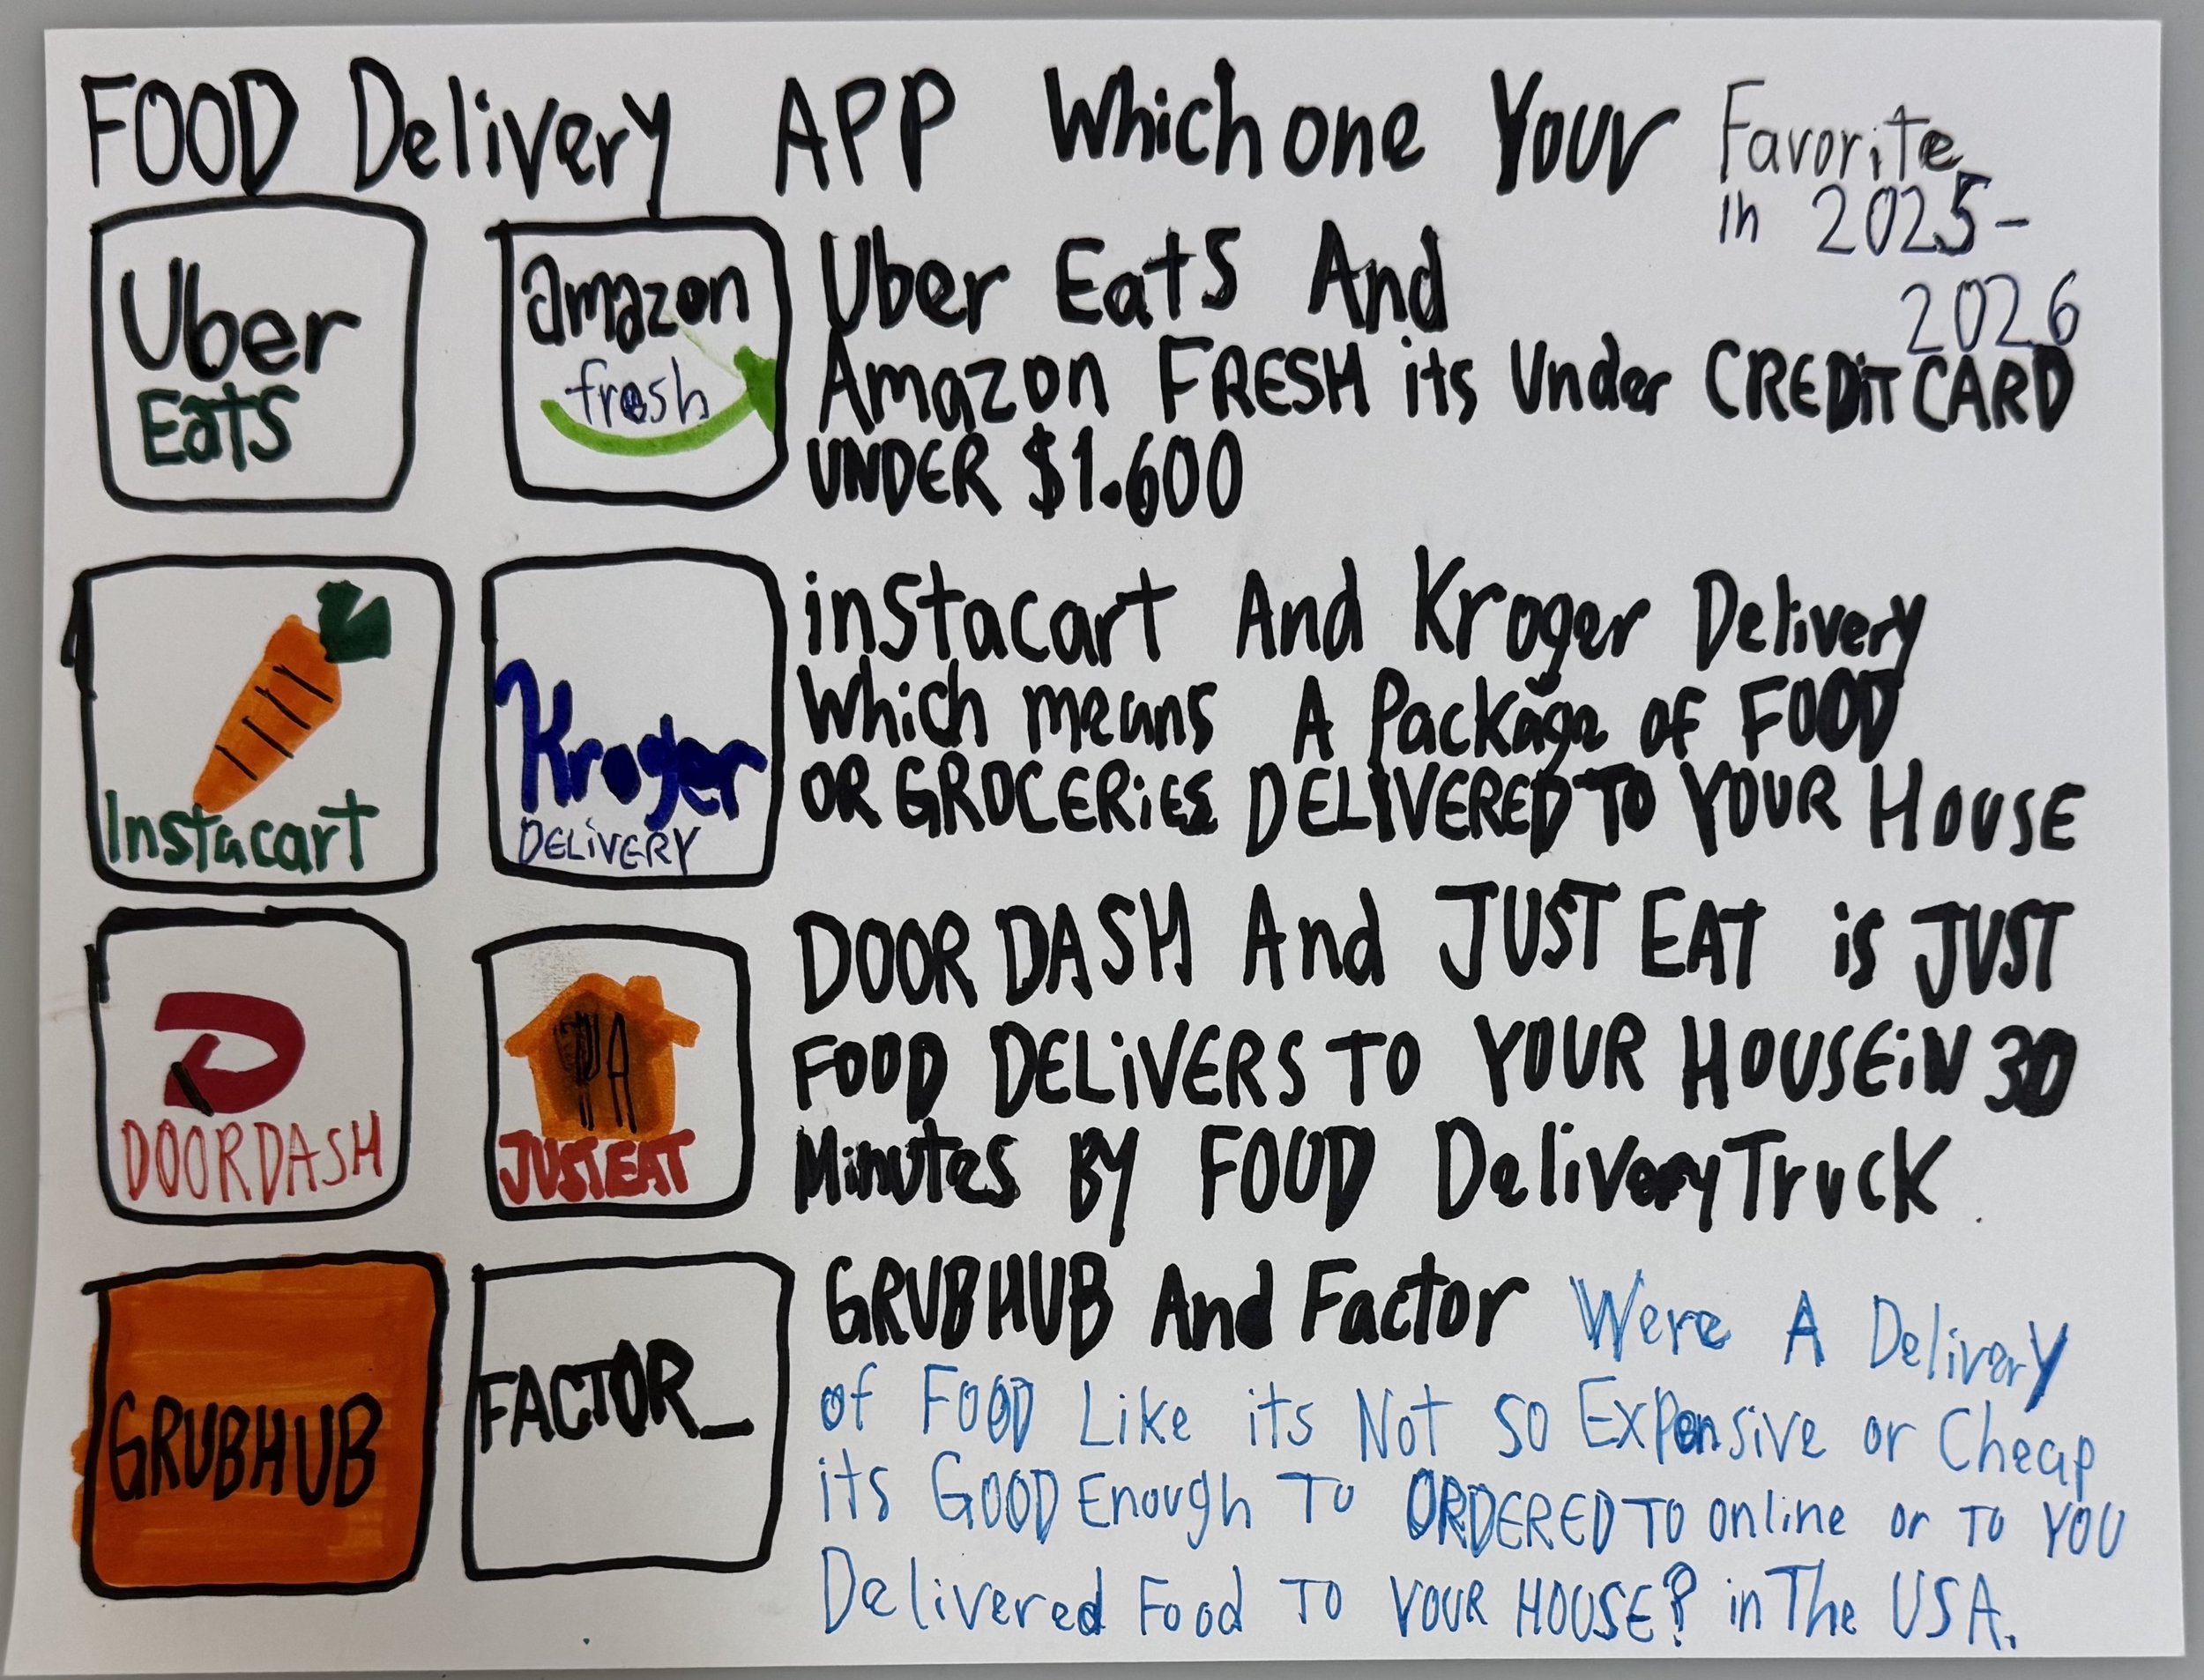 FOOD Delivery APP Which one Your Favorite
in 2025-
2026
Uber
Eats
amazon
fresh
Uber Eats And
Amazon FRESH its Under CREDiT CARD
UNDER $1.600
Instacart
Kroger
DELiVERY
instacart And Kroger Delivery
Which means A Package of FOOD
OR GROCERiES DELIVERED TO YOUR HOUSE
DOORDASH
JUST EAT
DOOR DASH And JUST EAT is JUST
FOOD DELiVERS TO YOUR HOUSEiN 30
Minutes BY FOOD Delivery Truck
GRUBHUB
FACTOR_
GRUBHUB And Factor Were A Delivery
of FOOD Like its Not so Expensive or Cheap
its GOOD Enough To ORDERED TO online or to YOU
Delivered Food To YOUR HOUSE? in The USA.